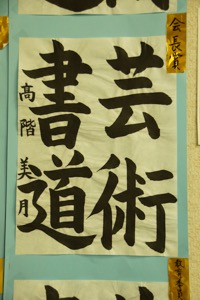 会長賞
芸術
書道
高階美月